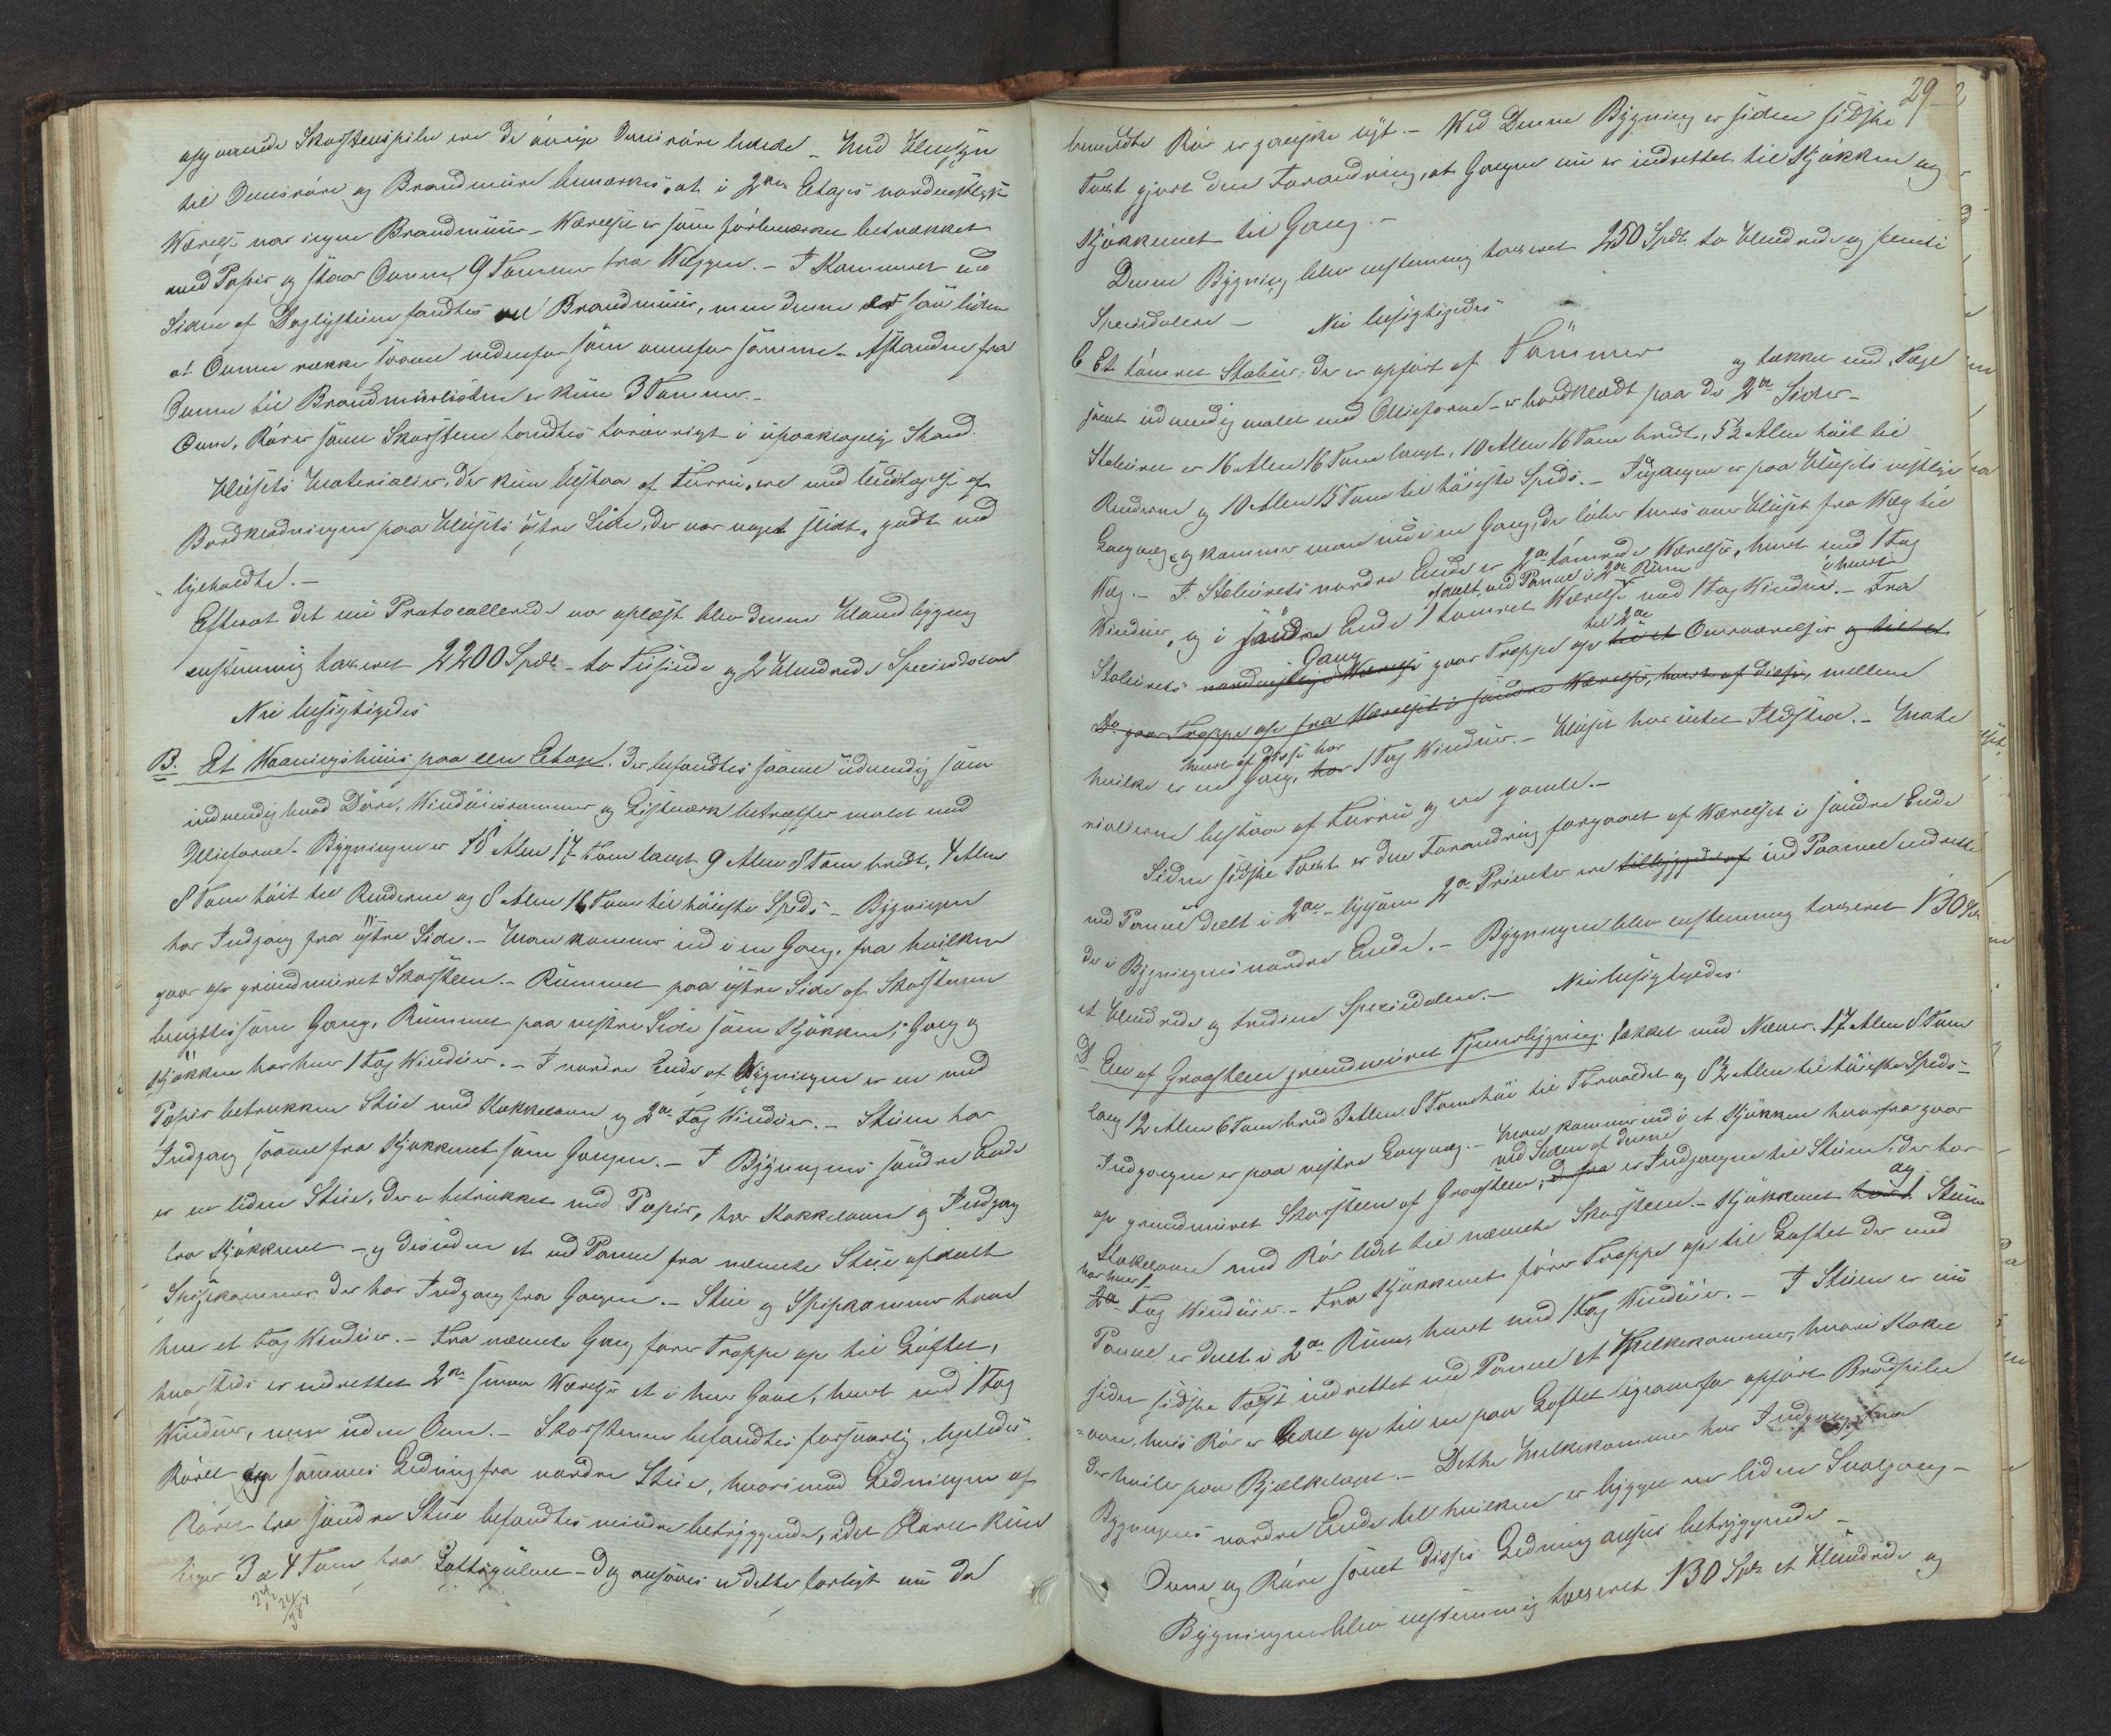 opgaaende Skorsteenspibe ere de øvrige Ovnsrøre ledede – Med Hensyn
til Ovnsrøre og Brandmure bemærkes, at i 2den Etages nordvestligste
Værelse var ingen Brandmuur – Værelset er som før bemærket betrækket
med Papir og staar Ovnen 9 Tommer fra Væggen. – I Kammeret ved
Siden af Dagligstuen fandtes vel Brandmuur, men denne er saa liden
at Ovnen rækker saavel nedenfor som ovenfor samme – Afstanden fra
Ovnen til Brandmuurlisten er kun 3 Tommer –
Ovne, Rør som Skorstene fandtes forøvrigt i upaaklagelig Stand.
Husets Materialier, der kun bestaa af Furru, ere med Undtagelse af
Bordklædningen paa Husets østre Side, der var noget slidt, godt ved
ligeholdte. –
Efterat det nu Protocollerede var oplæst blev denne Hovedbygning
eenstemmig taxeret 2200 Spdl – to Tusinde og 2 Hundrede Speciedaler
Nu besigtigedes
B. Et Vaaningshuus paa een Etage. Der befandtes saavel udvendig som
indvendig hvad Døre, Vinduesrammer og Listværk betræffer malet med
Olliefarve. Bygningen er 18 Alen 17 Tom langt 9 Alen 8 Tom bredt, 4 Alen
8 Tom høit til Renderne og 8 Alen 16 Tom til høieste Spids – Bygningen
har Indgang fra østre Side. – Man kommer ind i en Gang, fra hvilken
gaar op grundmuret Skorsteen. – Rummet paa østre Side af Skorstenen
benyttes som Gang, Rummet paa vestre Side som Kjøkken; Gang og
Kjøkken har hver 1 Fag Vinduer. – I nordre Ende af Bygningen er en med
Papir betrukken Stue med Kakkelovn og 2de Fag Vinduer. – Stuen har
Indgang saavel fra Kjøkkenet som Gangen. – I Bygningens søndre Ende
er en liden Stue, der er betrukket med Papir, har Kakkelovn og Indgang
fra Kjøkkenet – og desuden et ved Panel fra nævnte Stue afdeelt
Spisekammer der har Indgang fra Gangen. – Stue og Spisekammer have
hver et Fag Vinduer. – Fra nævnte Gang fører Trappe op til Loftet,
hvorsteds er indrettet 2de smaa Værelser et i hver Gavl, hvert med 1 Fag
Vinduer, men uden Ovn. – Skorstenen befandtes forsvarlig, ligeledes
Røret og sammes Ledning fra nordre Stue, hvorimod Ledningen af
Røret fra søndre Stue befandtes mindre betryggende, idet Røret kun
ligger 3 a 4 Tom fra Loftsgulvet – Dog ansaaes dette forligt nu da
29
bemeldte Rør er ganske nyt. – Ved denne Bygning er siden sidste
Taxt gjort den Forandring, at Gangen nu er indrettet til Kjøkken og
Kjøkkenet til Gang. –
Denne Bygning blev eenstemmig taxeret 250 Spdl to Hundrede og femti
Speciedalere – Nu besigtigedes
C Et tømret Stabuur, der er opført af Tömmer og tækket med Tagsteen
samt udvendig malet med Olliefarve – er bordklædt paa de 2de Sider –
Stabuuret er 16 Alen 16 Tom langt, 10 Alen 16 Tom bredt, 5½ Alen høit til
Renderne og 10 Alen 15 Tom til høieste Spids. – Indgangen er paa Husets vestlige
Langvæg, og kommer man ind i en Gang, der løber tvers over Huset fra Væg til
Væg. – I Stabuurets nordre Ende er 2de tømrede Værelser, hvert med 1 Fag
Vinduer, og i søndre Ende 1 tømret Værelse afdeelt ved Panel i 2de Rum med 1 Fag Vinduer i hvert. – Fra
Stabuurets nordvestlige Værelse Gang gaar Trappe op til et til 2de Overværelser og til et
Do gaar Trappe op fra Værelset i søndre Værelse, hvert af disse, mellem
hvilke er en Gang, har hvert af disse har 1 Fag Vinduer. – Huset har intet Ildsted. – Mate
rialierne bestaa af Furru og ere gamle. –
Siden sidste Taxt er den Forandring foregaaet at Værelset i søndre Ende
ved Panel deelt i 2de – ligesom 2de Priveter ere tilbyggede af ind Paanel indrette
de i Bygningens nordre Ende. – Bygningen blev eenstemmig taxeret 130 Spd
et Hundrede og tredive Speciedalere. – Nu besigtigedes:
D En af Graasteen grundmuret Fjøsbygning tækket med Næver. 17 Alen 8 Tom
lang 12 Alen 6 Tom bred 3 Alen 8 Tom høi til Tagværket og 8½ Alen til høieste Spids –
Indgangen er paa vestre Langvæg. – Man kommer ind i et Kjøkken hvorfra gaar
op grundmuret Skorsteen af Graasteen, d fra ved Siden af denne er Indgangen til Stuen, der har
Kakelovn med Rør ledet til nævnte Skorsteen. – Kjøkkenet har 1 og Stuen
2de har hver 1 Fag Vinduer. – Fra Kjøkkenet fører Trappe op til Loftet der med
Panel er deelt i 2de Rum, hvert med 1 Fag Vinduer. – I Stuen er nu
siden sidste Taxt indrettet ved Panel et Melkekammer, hvori Kakel
-ovn, hvis Rør er ledet op til en paa Loftet ligeoverfor opført Brødpibe
der hviler paa Bjelkelaget. – Dette Melkekammer har Indgang fra
Bygningens nordre Ende til hvilken er bygget en liden Svalgang –
Ovne og Røre samt disses Ledning ansees betryggende –
Bygningen blev eenstemmig taxeret 130 Spdl et Hundrede og